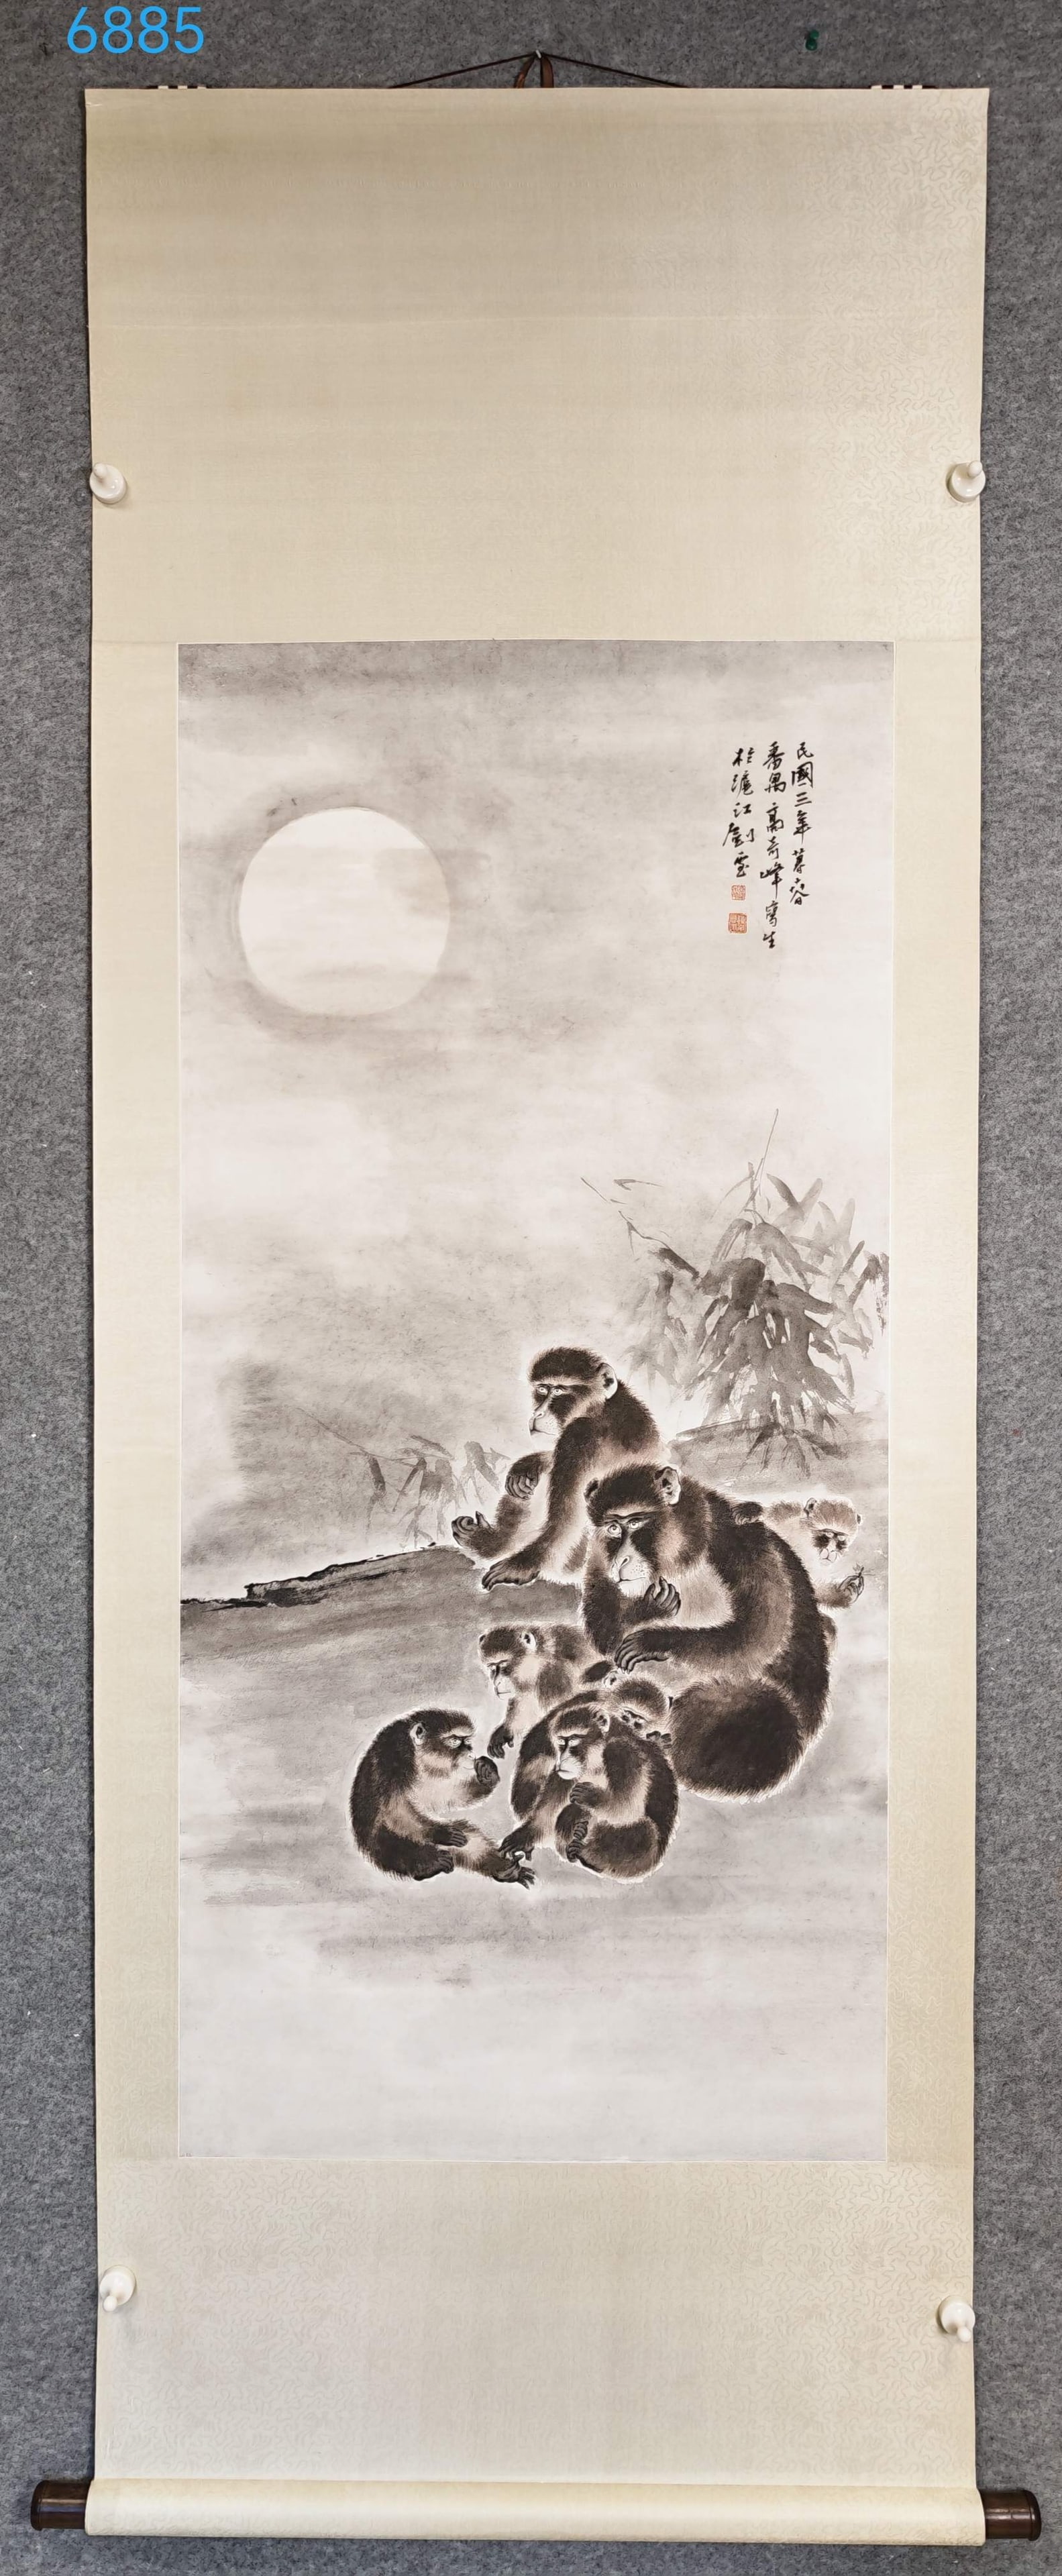 6885
民國三年暮春
番禺高奇峰寫生
於滬江劍雲